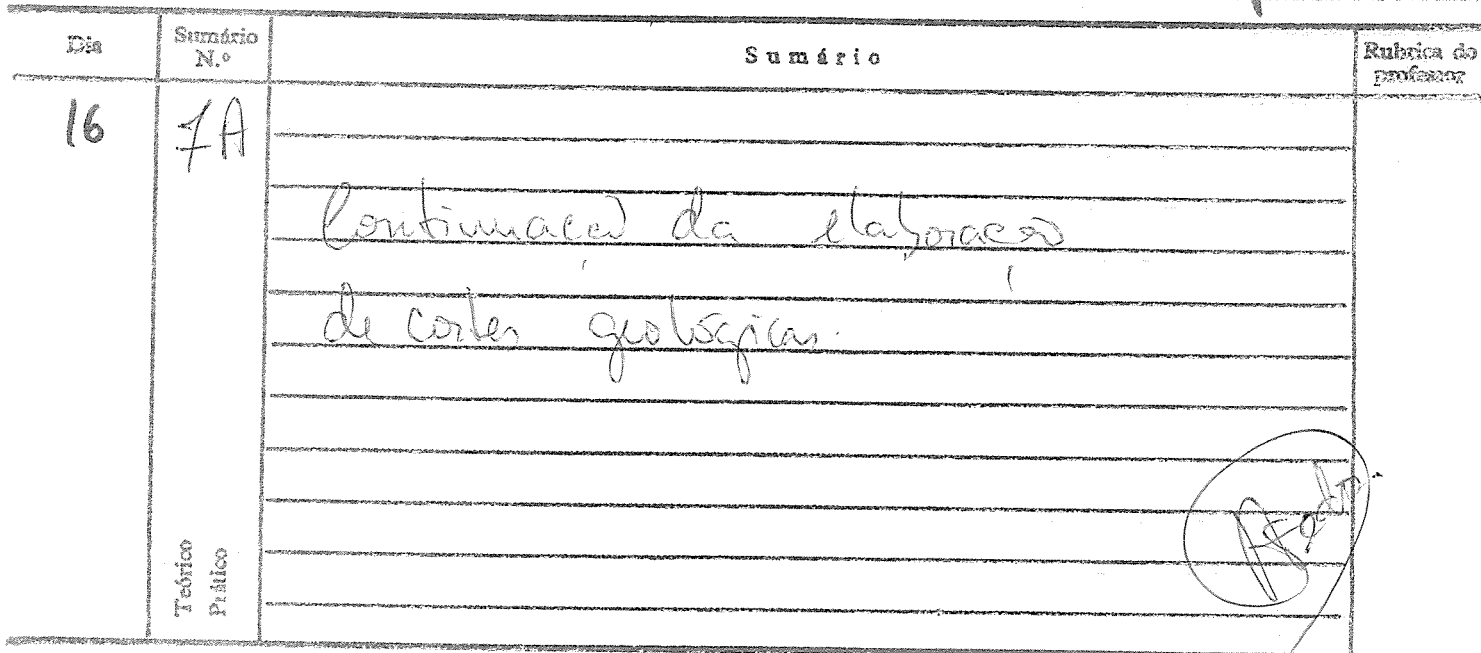 Dia
Sumário N.º
Sumário
Rubrica do professor
16
7A
Continuação da elaboração
de cortes geológicos.
Teórico
Prático